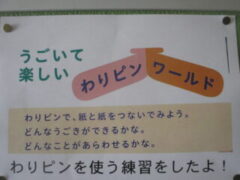 うごいて
楽しい
わりピン ワールド
わりピンで、紙と紙をつないでみよう。
どんなうごきができるかな。
どんなことがあらわせるかな。
わりピンを使う練習をしたよ!